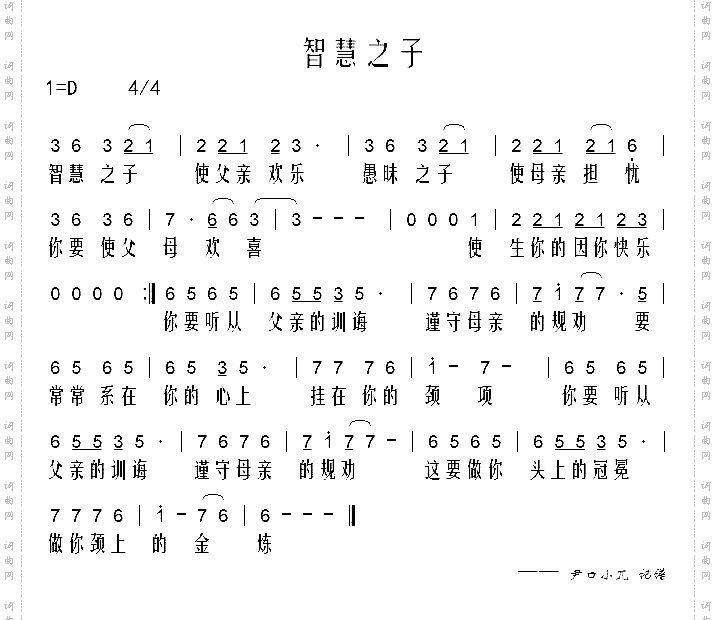 智慧之子
1=D 4/4
3 6 3 2 1 | 2 2 1 2 3 · | 3 6 3 2 1 | 2 2 1 2 1 6 |
智慧 之子 使父亲 欢乐 愚昧 之子 使母亲 担 忧
3 6 3 6 | 7 · 6 6 3 | 3 - - - | 0 0 0 1 | 2 2 1 2 1 2 3 |
你要 使父 母 欢 喜 使 生你的因你快乐
0 0 0 0 :‖ 6 5 6 5 | 6 5 5 3 5 · | 7 6 7 6 | 7 i 7 7 · 5 |
你要听从 父亲的训诲 谨守母亲 的规劝 要
6 5 6 5 | 6 5 3 5 · | 7 7 7 6 | i - 7 - | 6 5 6 5 |
常常 系在 你的 心上 挂在 你的 颈 项 你要 听从
6 5 5 3 5 · | 7 6 7 6 | 7 i 7 7 - | 6 5 6 5 | 6 5 5 3 5 · |
父亲的训诲 谨守母亲 的规劝 这要做你 头上的冠冕
7 7 7 6 | i - 7 6 | 6 - - - ‖
做你颈上 的 金 炼
—— 尹口小兀 记谱
词曲网